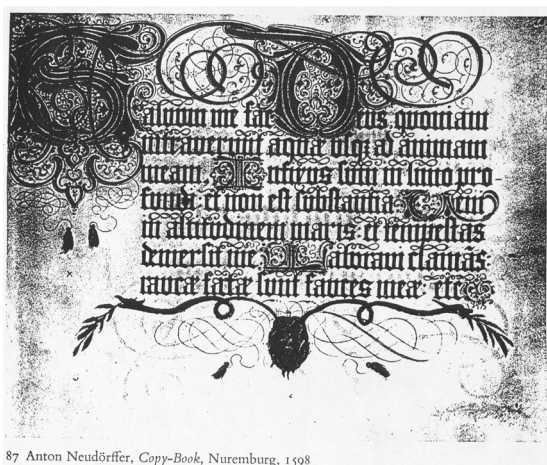 Salvum me fac Deus quoniam
intraverunt aquæ usq; ad animam
meam. Infixus sum in limo pro-
fundi: et non est substantia. Veni
in altitudinem maris: et tempestas
demersit me. Laboravi clamās:
raucæ factæ sunt fauces meæ: etc
87 Anton Neudörffer, Copy-Book, Nuremburg, 1598